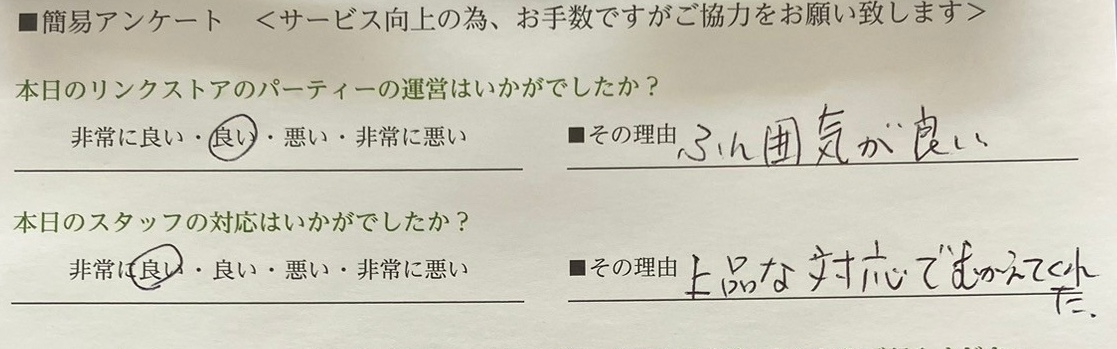 ■簡易アンケート　＜サービス向上の為、お手数ですがご協力をお願い致します＞
本日のリンクストアのパーティーの運営はいかがでしたか？
非常に良い・良い・悪い・非常に悪い　■その理由 ふん囲気が良い
本日のスタッフの対応はいかがでしたか？
非常に良い・良い・悪い・非常に悪い　■その理由 上品な対応でむかえてくれ
た.